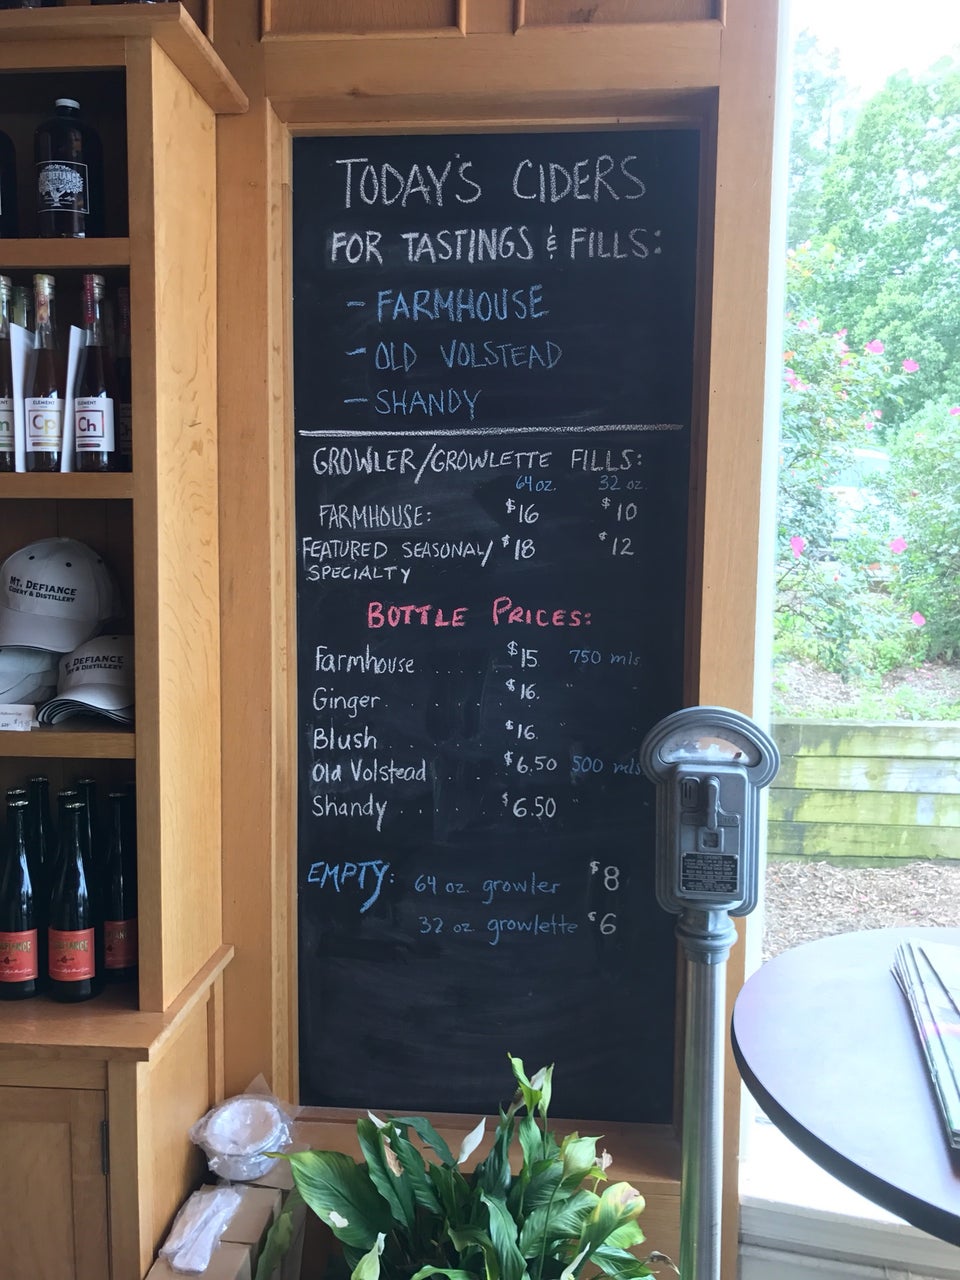 TODAY'S CIDERS
FOR TASTINGS & FILLS:
- FARMHOUSE
- OLD VOLSTEAD
- SHANDY
GROWLER/GROWLETTE FILLS:
64 oz. 32 oz.
FARMHOUSE: $16 $10
FEATURED SEASONAL/ $18 $12
SPECIALTY
BOTTLE PRICES:
Farmhouse .... $15 750 mls
Ginger..... $16. "
Blush..... $16. "
Old Volstead .. $6.50 500 mls
Shandy .... $6.50 "
EMPTY: 64 oz. growler $8
32 oz growlette $6
MT. DEFIANCE
ELEMENT
Cp
ELEMENT
Ch
MT. DEFIANCE
CIDERY & DISTILLERY
T. DEFIANCE
Y & DISTILLERY
DEFIANCE